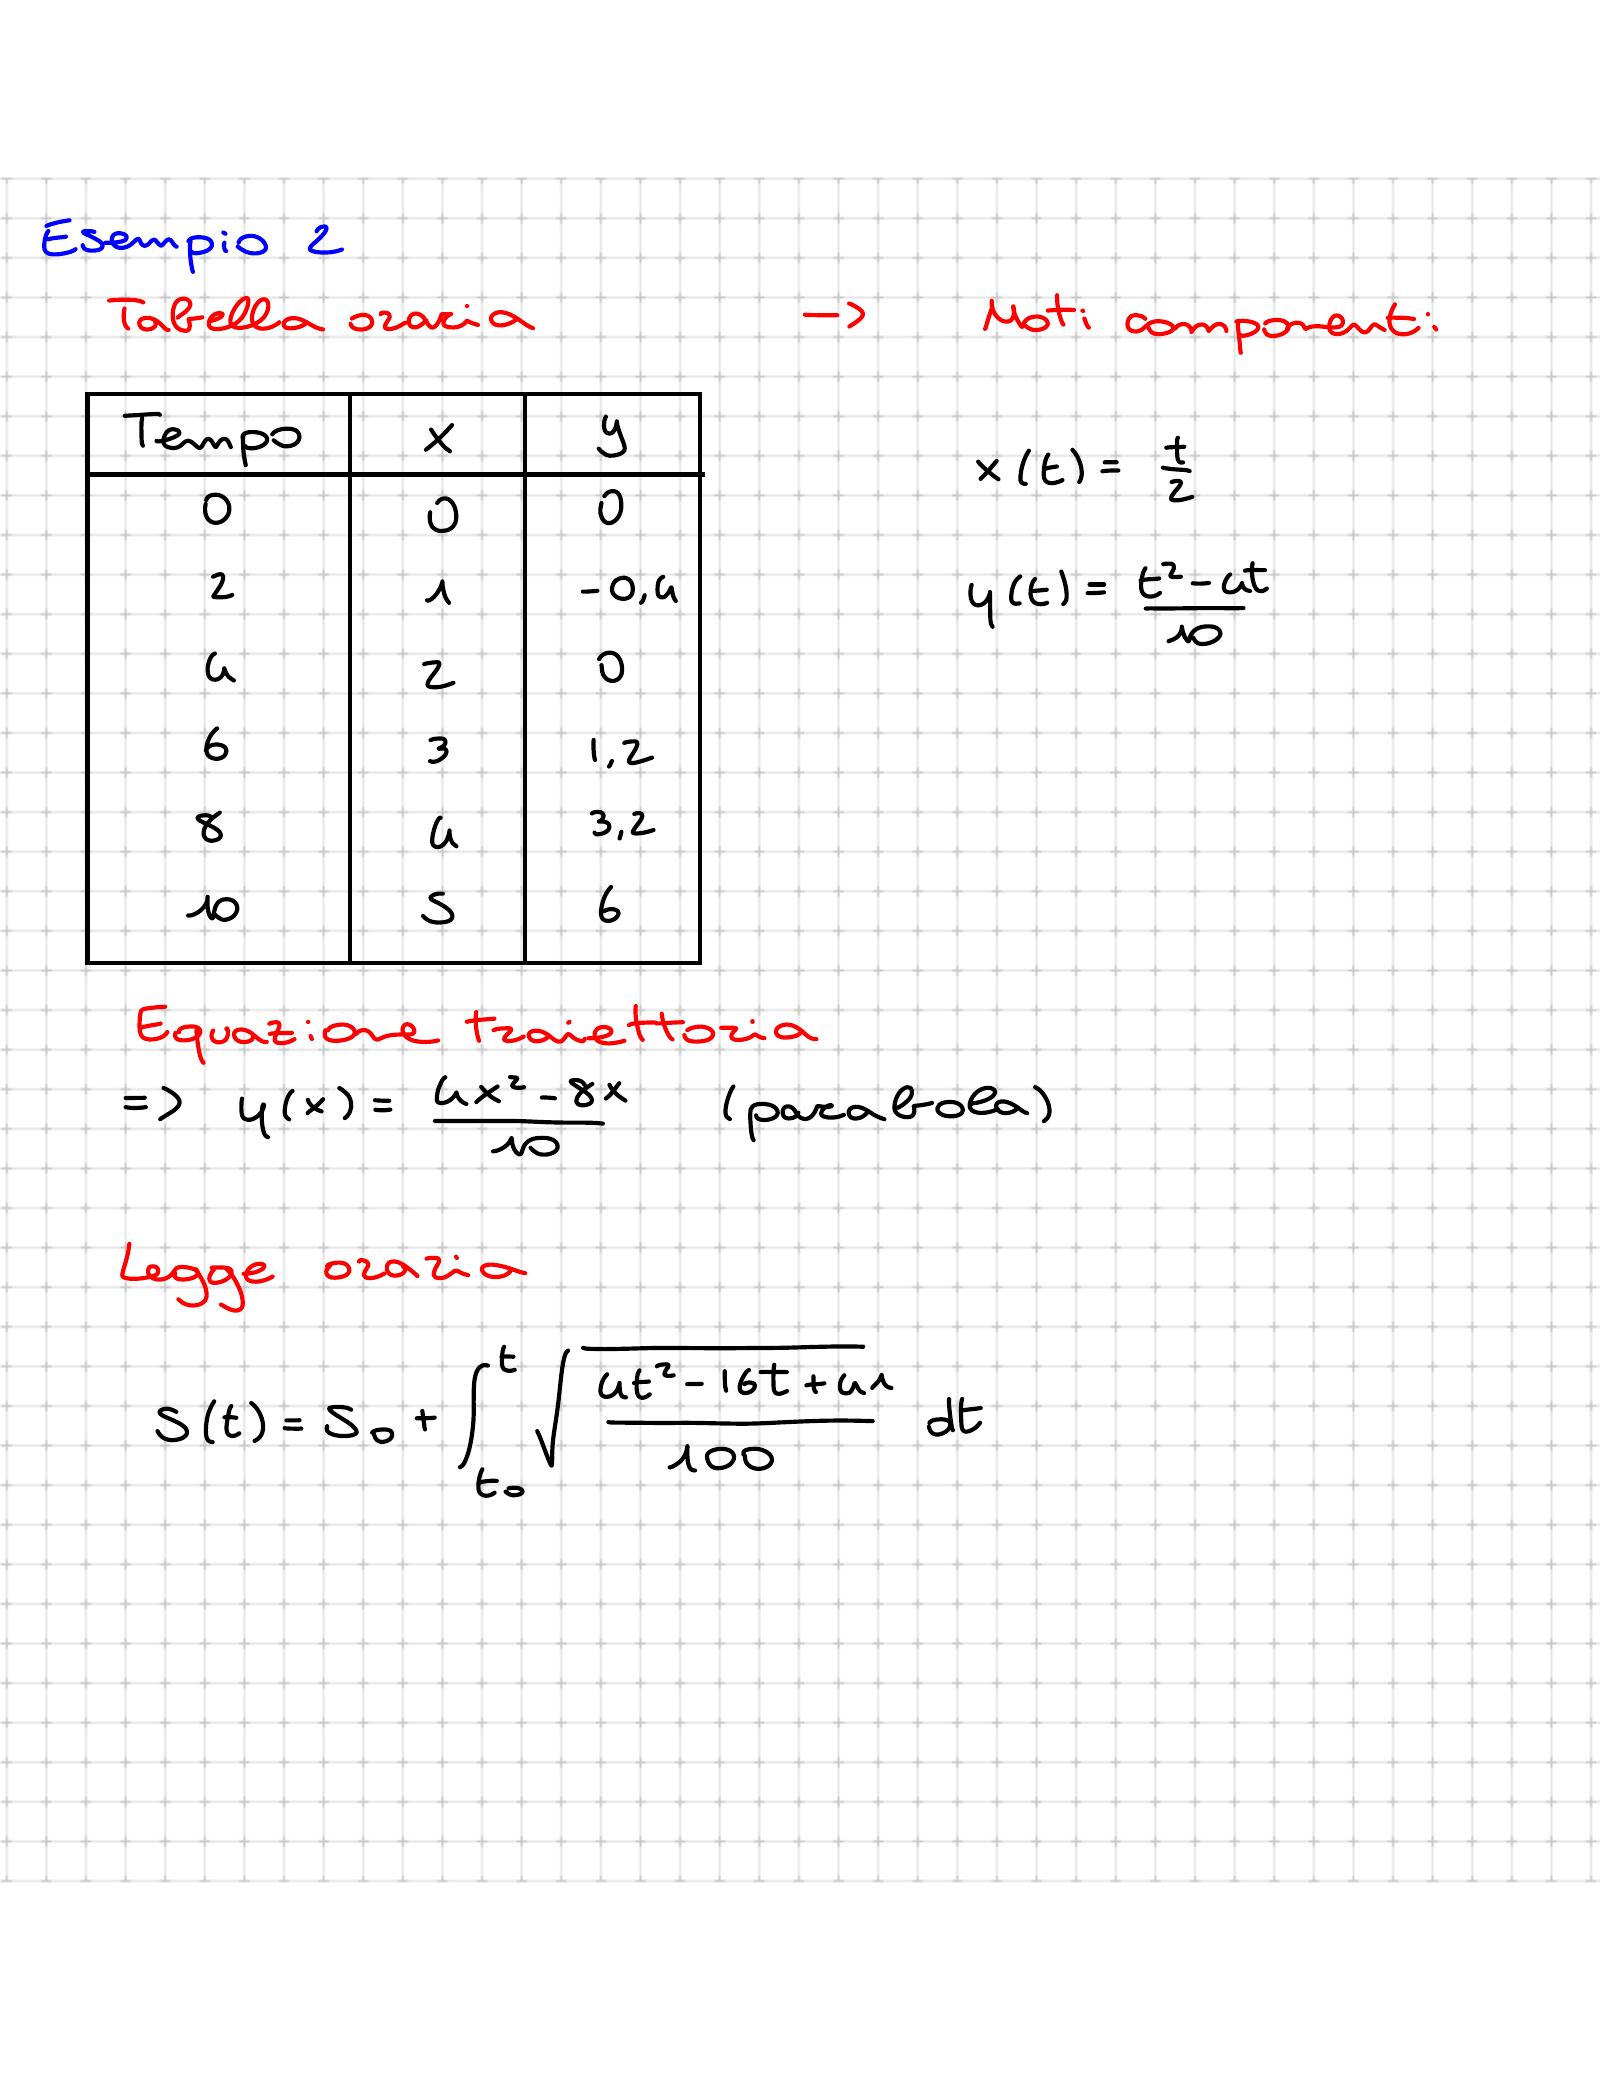 Esempio 2
Tabella oraria -> Moti componenti
Tempo x y
0 0 0
2 1 -0,4
4 2 0
6 3 1,2
8 4 3,2
10 5 6
x(t) = t/2
y(t) = (t² - 4t)/10
Equazione traiettoria
=> y(x) = (4x² - 8x)/10 (parabola)
Legge oraria
S(t) = S₀ + ∫ₜ₀ᵗ √((4t² - 16t + 41)/100) dt